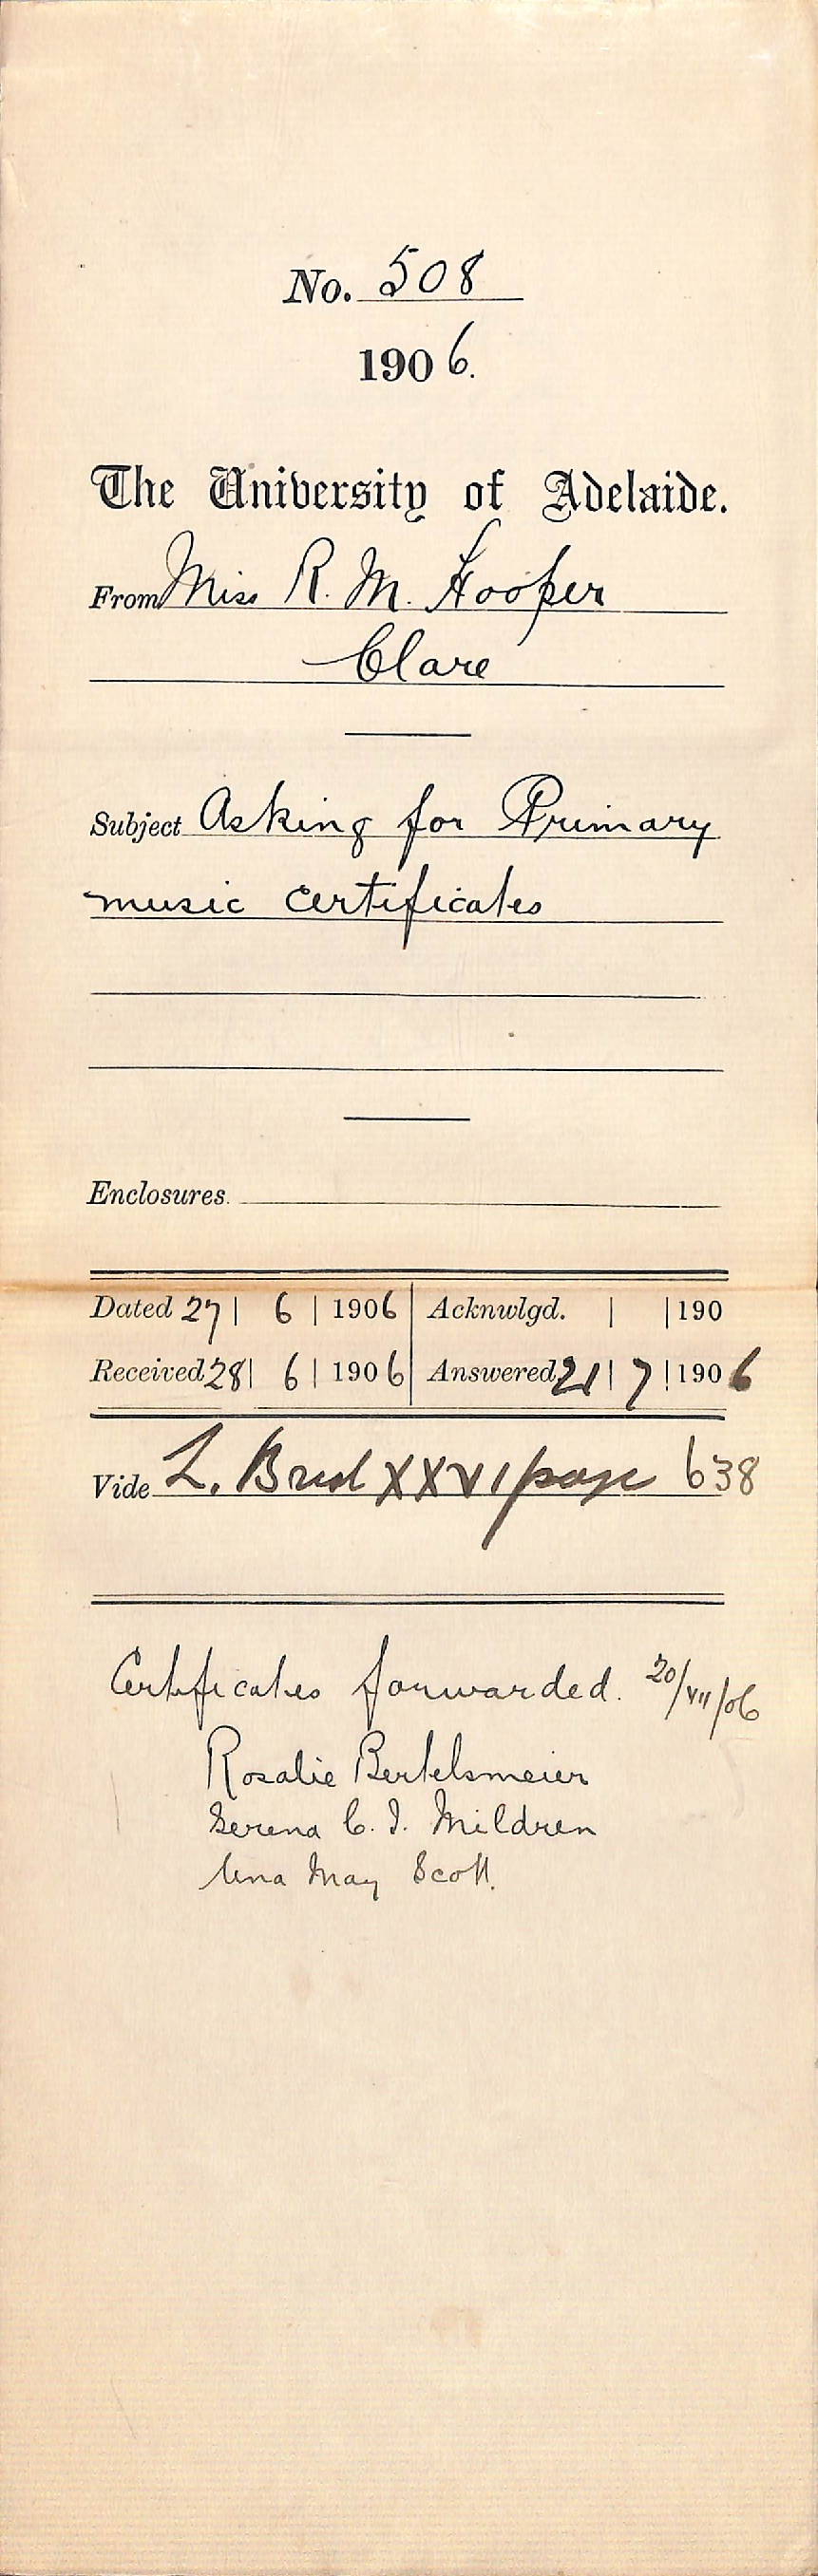 No. 508
1906.
The University of Adelaide.
From Miss R. M. Hooper
Clare
Subject Asking for Primary
music certificates
Enclosures.
Dated 27 | 6 | 1906 | Acknwlgd. | | 190
Received 28 | 6 | 1906 | Answered 21 | 7 | 1906
Vide L. XXVI page 638
Certificates forwarded. 20/VII/06
Rosalie Bertelsmeier
Serena C. I. Mildren
Una May Scott.